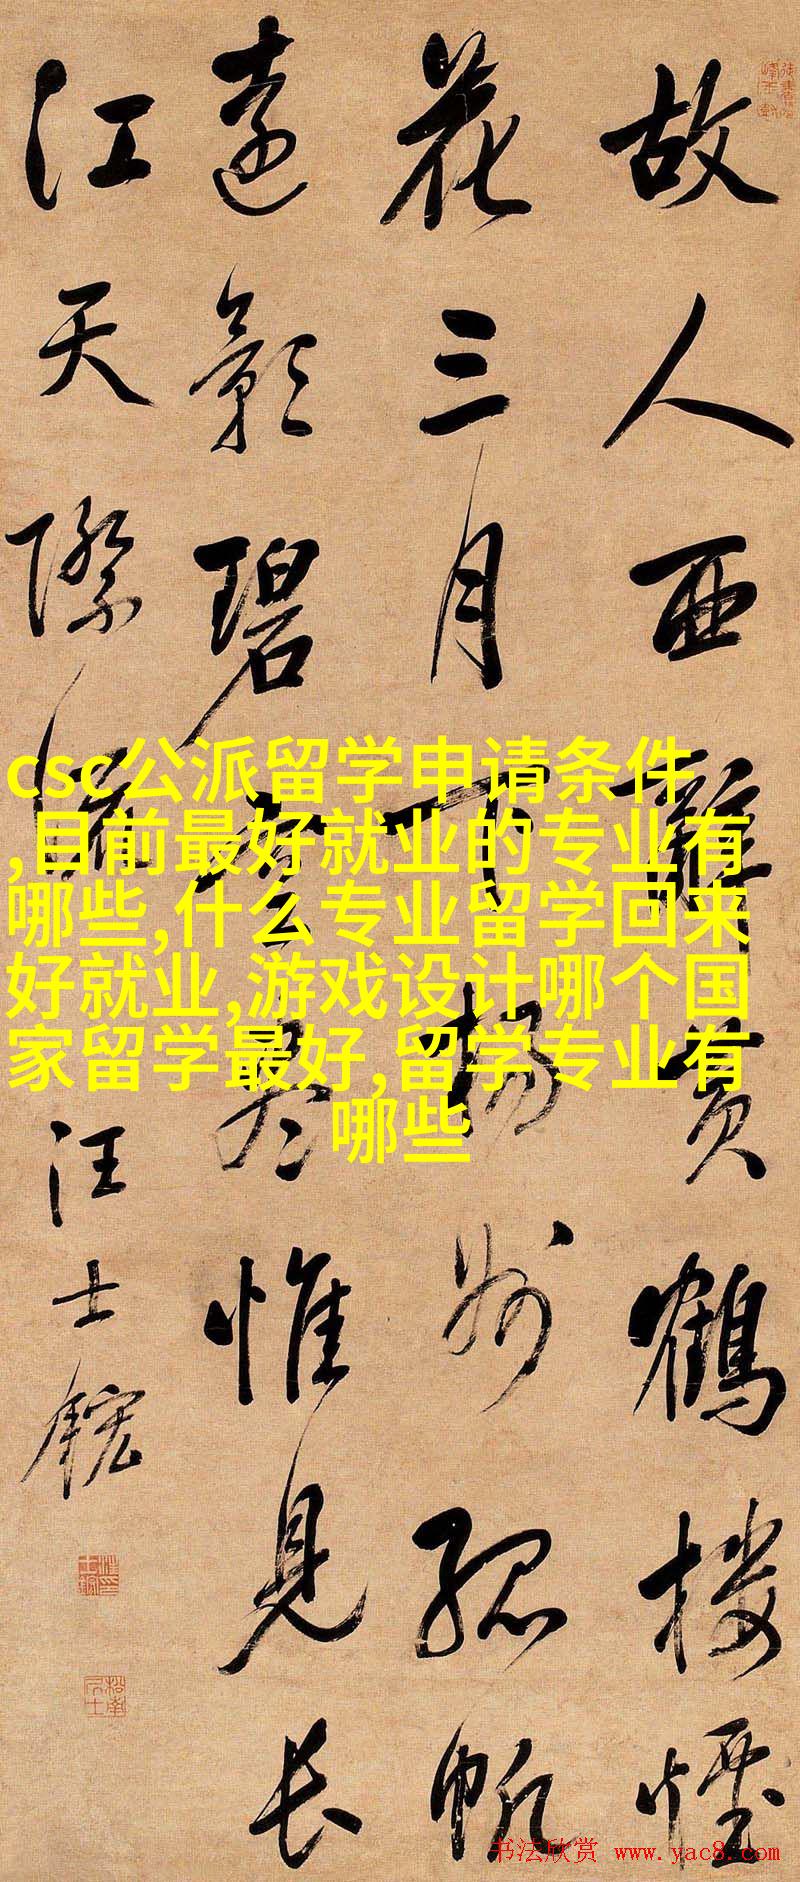 故人西辭黃鶴樓煙
花三月下揚州孤帆
遠影碧空盡惟見長
江天際流
汪士鋐
csc公派留学申请条件
,目前最好就业的专业有
哪些,什么专业留学回来
好就业,游戏设计哪个国
家留学最好,留学专业有
哪些
书法欣赏 www.yac8.com